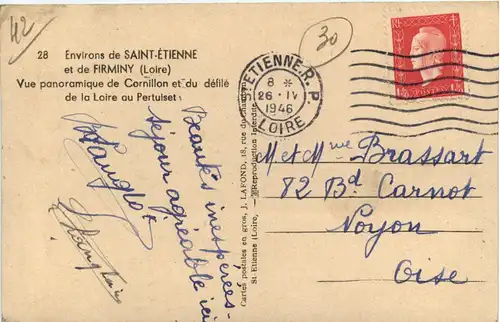 42
30
28 Environs de SAINT-ÉTIENNE
et de FIRMINY (Loire)
Vue panoramique de Cornillon et du défilé
de la Loire au Pertuiset
Beautés inespérées-
séjour agréable ici
Cartes postales en gros, J. LAFOND, 18, rue du
St-Etienne (Loire, Reproduction Interdite
ST ETIENNE R.P
8 *
26 · IV
1946
LOIRE
RF
POSTES
M et Mme Brassart
82 Bd Carnot
Noyon
Oise